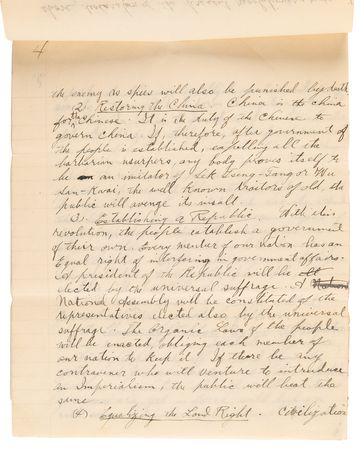 4
the enemy as spies will also be punished by death
2. Restoring the China. China is the china
for the Chinese. It is the duty of the Chinese to
govern China. If, therefore, after government of
the people is established, expelling all the
barbarian usurpers, any body proves itself to
be an imitator of Sek Tseng-Tang or Wu
San-Kwai, the well known traitors of old, the
public will avenge its insult.
3). Establishing a Republic. With this
revolution, the people establish a government
of their own. Every member of our nation has an
Equal right of interfering in government affairs.
A president of the Republic will be
elected by the universal suffrage. A
National Assembly will be constituted of the
representatives elected also by the universal
suffrage. The Organic Laws of the people
will be enacted, obliging each member of
our nation to keep it. If there be any
contravener who will venture to introduce
an Imperialism, the public will beat the
same.
(4) Equalizing the Land Right. Civilization